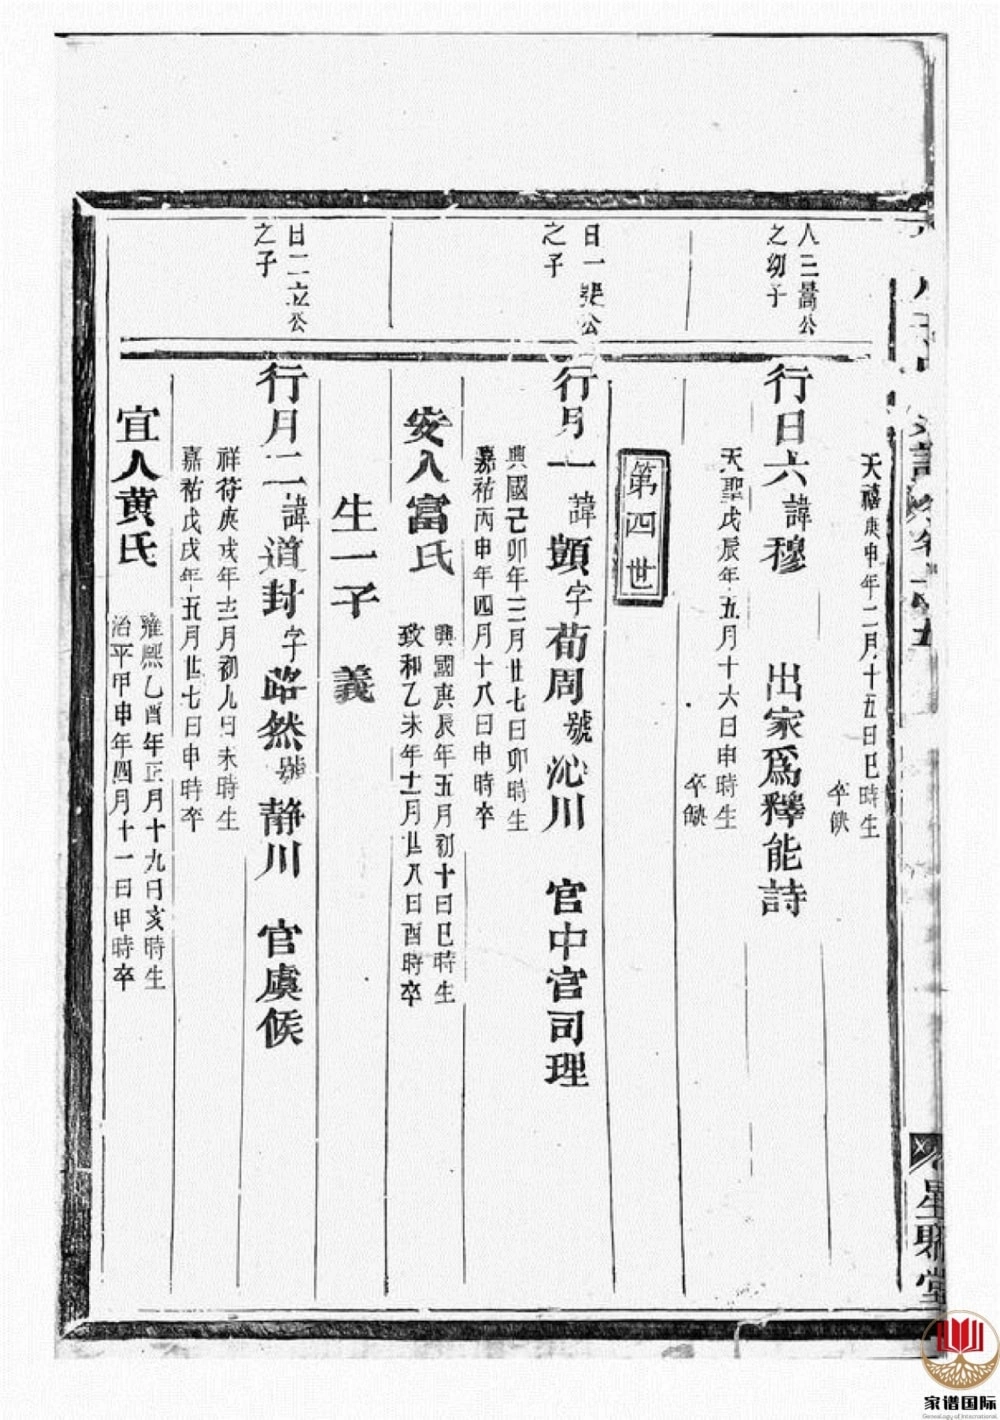 天禧庚申年二月十五日巳時生
卒缺
人三暠公
之幼子
行日六 諱穆 出家爲釋能詩
天聖戊辰年五月十六日申時生
卒缺
第四世
日一
公
之子
行月一 諱顗 字荀周 號沁川 官中官司理
興國己卯年三月廿七日卯時生
嘉祐丙申年四月十八日申時卒
安人富氏
興國庚辰年五月初十日巳時生
致和乙未年十一月廿八日酉時卒
生一子 義
日二立公
之子
行月二 諱道封 字路然 號靜川 官虞候
祥符庚戌年十二月初九日未時生
嘉祐戊戌年五月廿七日申時卒
宜人黄氏
雍熙乙酉年正月十九日亥時生
治平甲申年四月十一日甲時卒
星聚堂
家谱国际
Genealogy of International